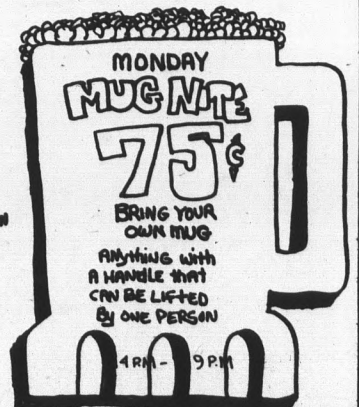 MONDAY
MUG NITE
75¢
BRING YOUR
OWN MUG
ANYTHING WITH
A HANDLE THAT
CAN BE LIFTED
BY ONE PERSON
4 PM - 9 P.M